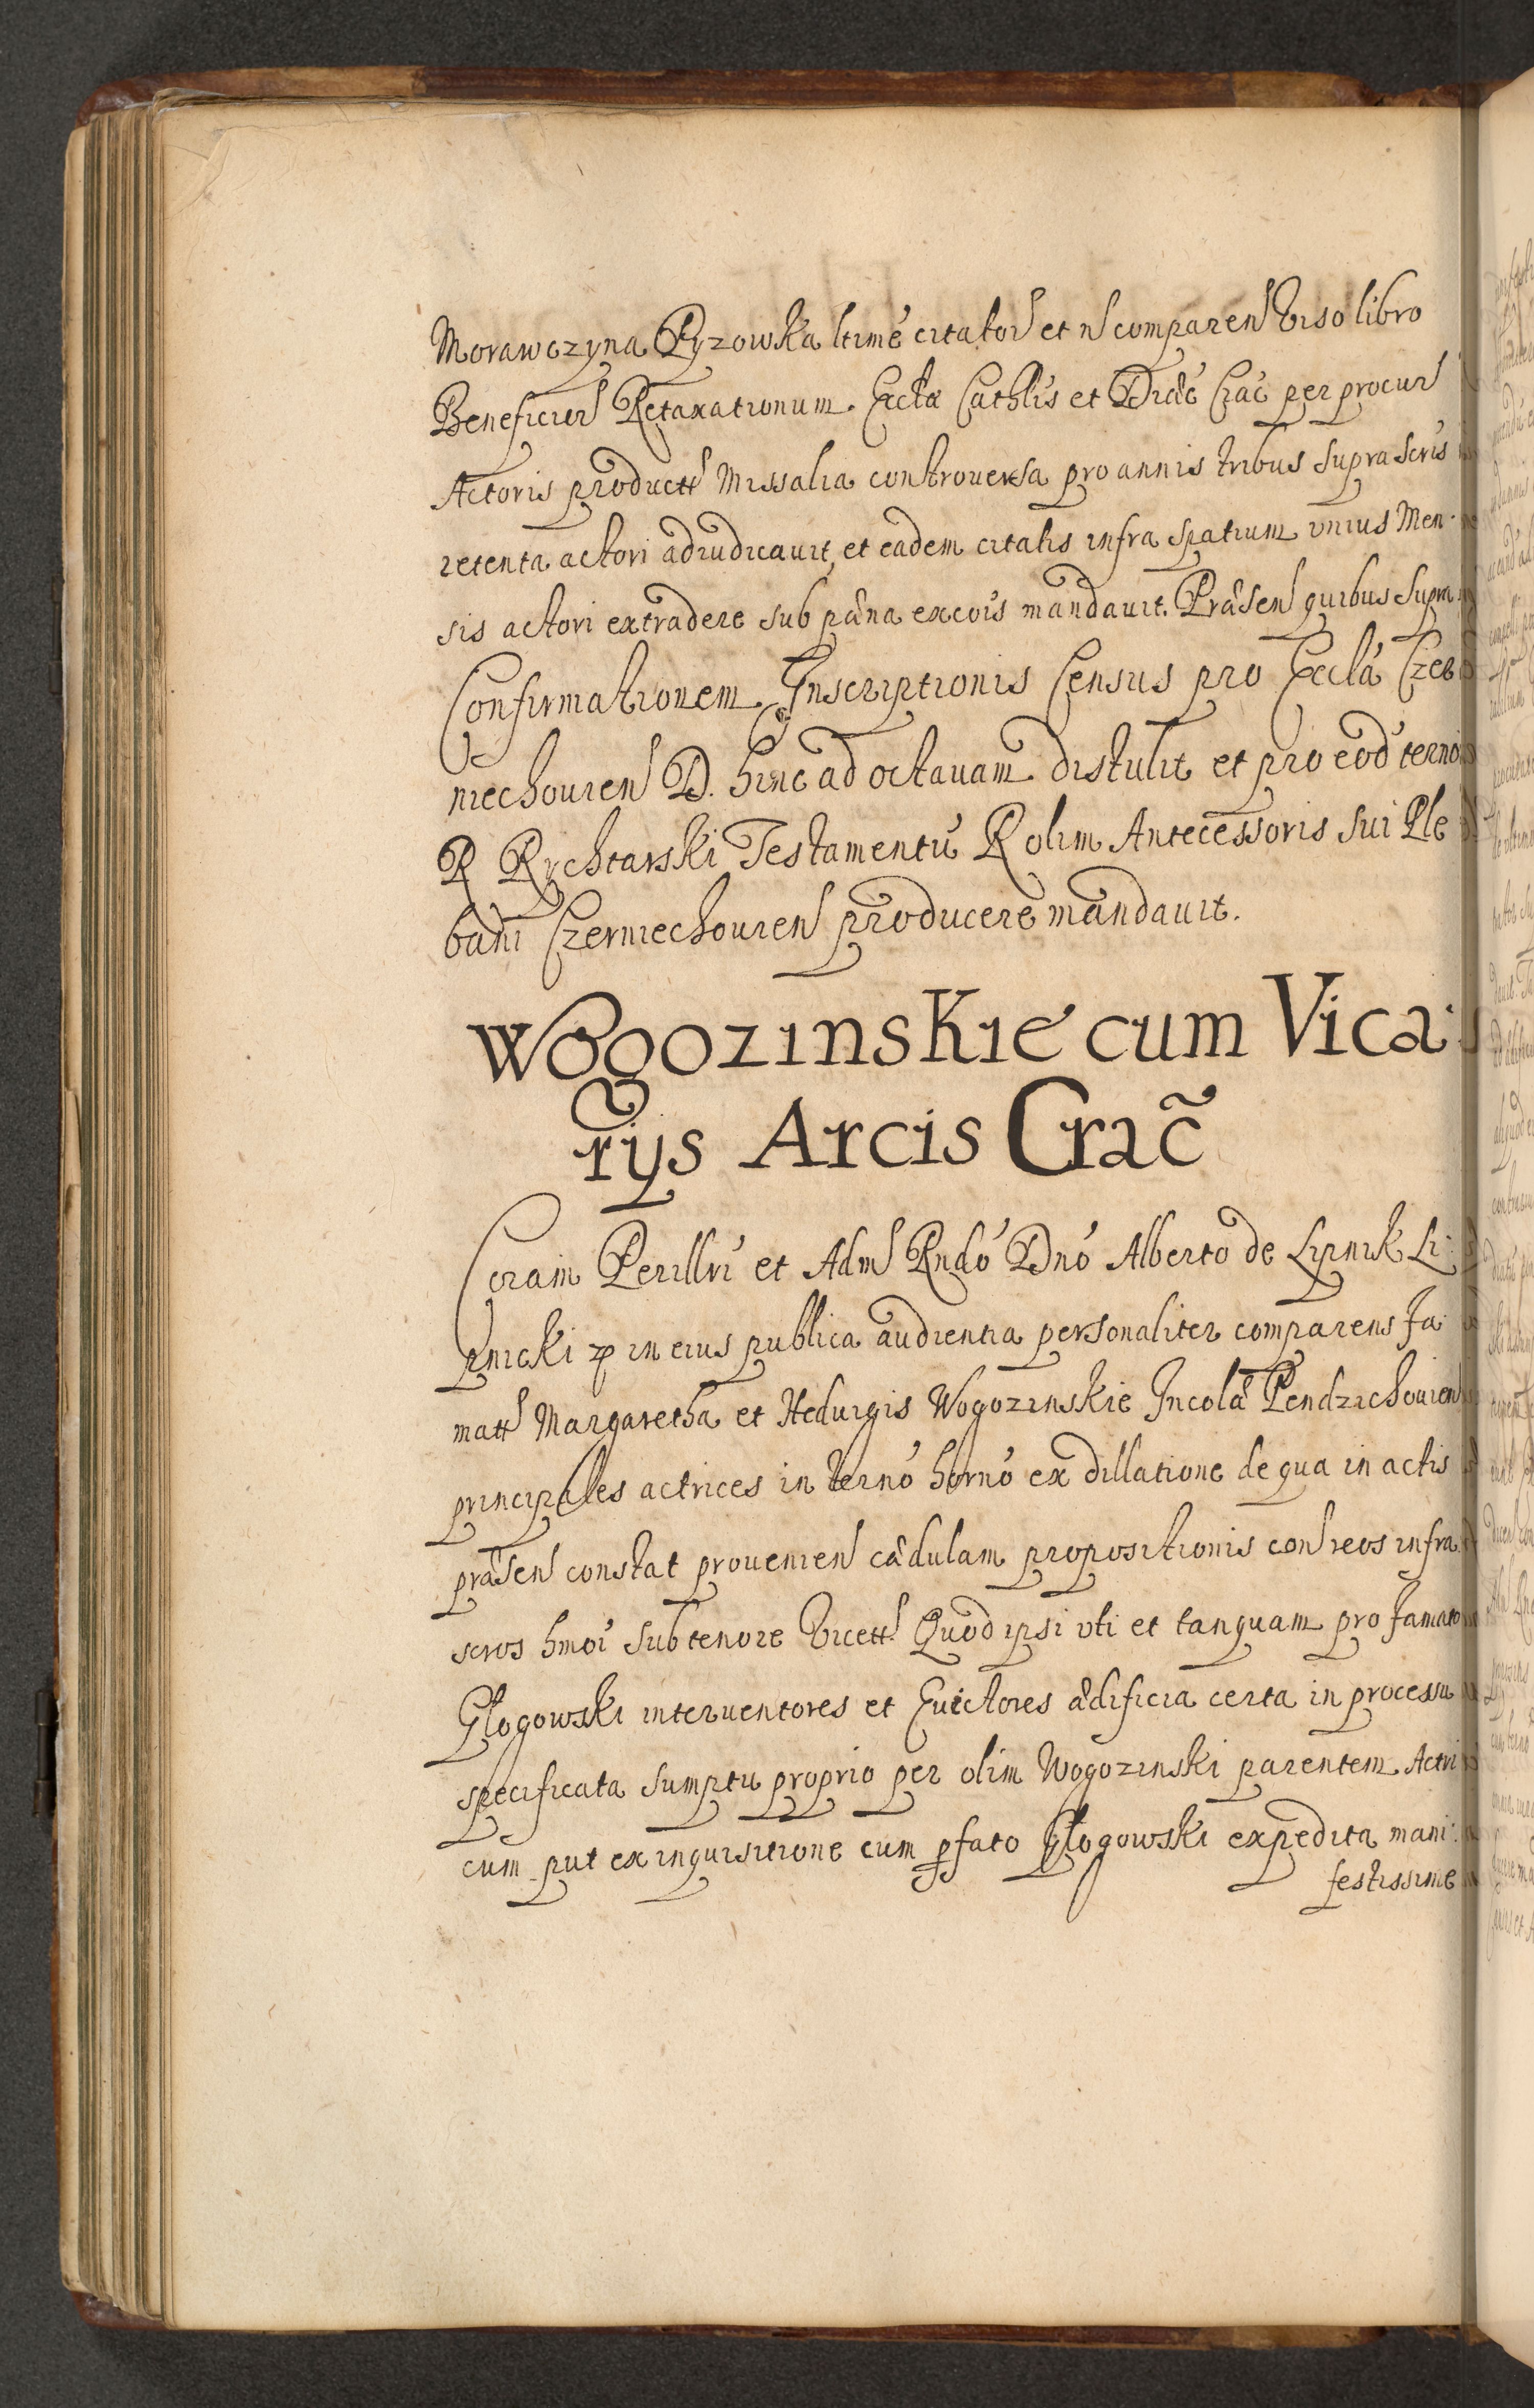 Morawczyna Pyzowka ltimé citator et n comparen viso libro
Beneficior Retaxationum. Eccla Cathlis et Diæc Crac per procur
Actoris product Missalia controuersa pro annis tribus supra scris
retenta actori adiudicauit, et eadem citatis infra spatium vnius Men-
sis actori extradere sub pæna excois mandauit. Præsen quibus supra
Confirmationem Inscriptionis Census pro Eccla Czer
niechouien D. hinc ad octauam distulit et pro eod terno
R Rychtarski Testamentu R olim Antecessoris sui Ple
bani Czerniechouien producere mandauit.
Wogozinskie cum Vica-
rijs Arcis Crac̃
Coram Perillri et Adm Rndo Dno Alberto de Lipnik Li-
pnicki in eius publica audientia personaliter comparens Fa
matt Margaretha et Heduigis Wogozinskie Incolæ Pendzichouien
principales actrices in terno horno ex dillatione de qua in actis
præsen constat prouenien cædulam propositionis con reos infra
scros hmoi sub tenore Quod ipsi vti et tanquam pro famato
Głogowski interuentores et Euictores ædificia certa in processu
specificata sumptu proprio per olim Wogozinski parentem Actri
cum put ex inquisitione cum pfato Głogowski expedita mani-
festissime